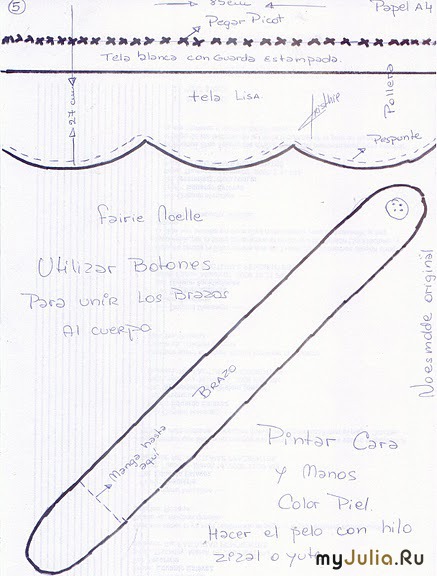 5
85cm
Papel A4
Pegar Picot
Tela blanca con Guarda Estampada.
27 cm
tela Lisa
Pollera
Pespunte
fairie Noelle
Utilizar Botones
Para unir Los Brazos
Al cuerpo
Noesmolde original
BRAZO
Manga hasta
aquí
Pintar Cara
y Manos
Color Piel.
Hacer el pelo con hilo
zizal o yute
myJulia.Ru